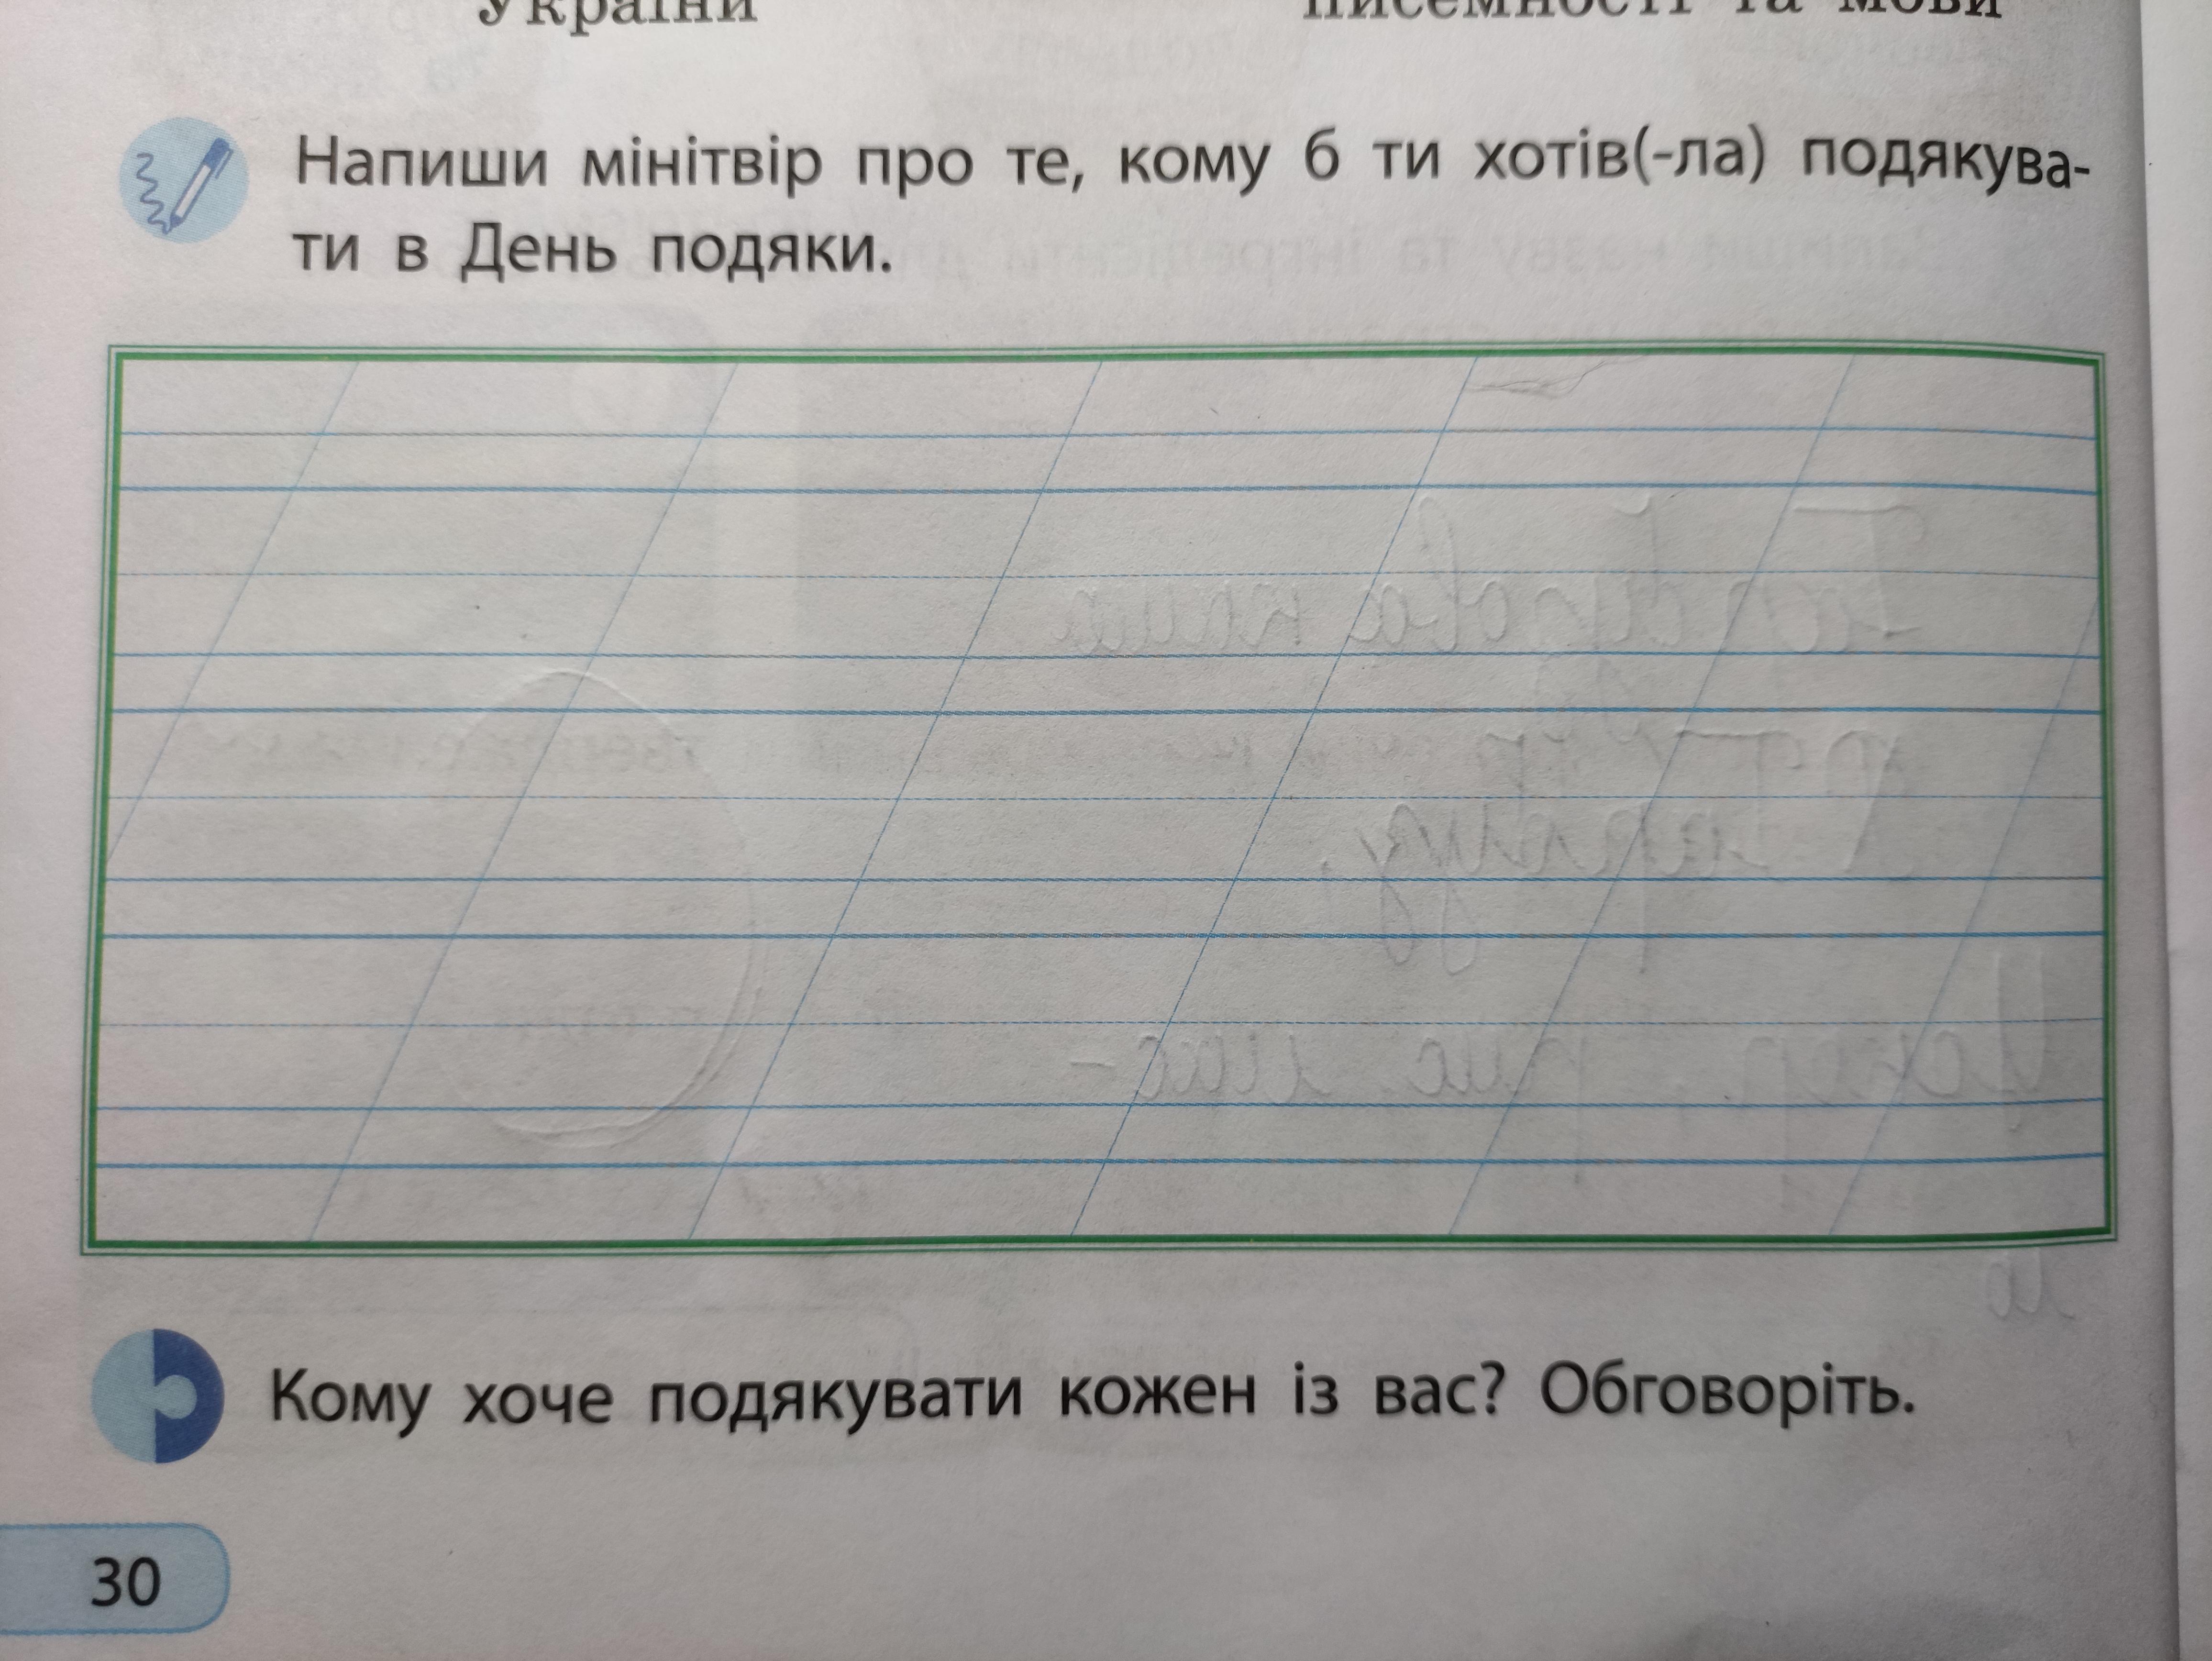 України писемності та мови
Напиши мінітвір про те, кому б ти хотів(-ла) подякува-
ти в День подяки.
Кому хоче подякувати кожен із вас? Обговоріть.
30